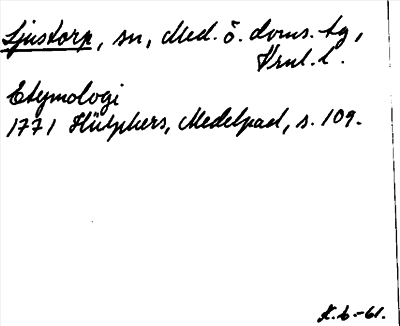 Ljustorp, sn, Med. ö. doms. tg,
Vrnl. l.
Etymologi
1771 Hülphers, Medelpad, s. 109.
K. b. -61.